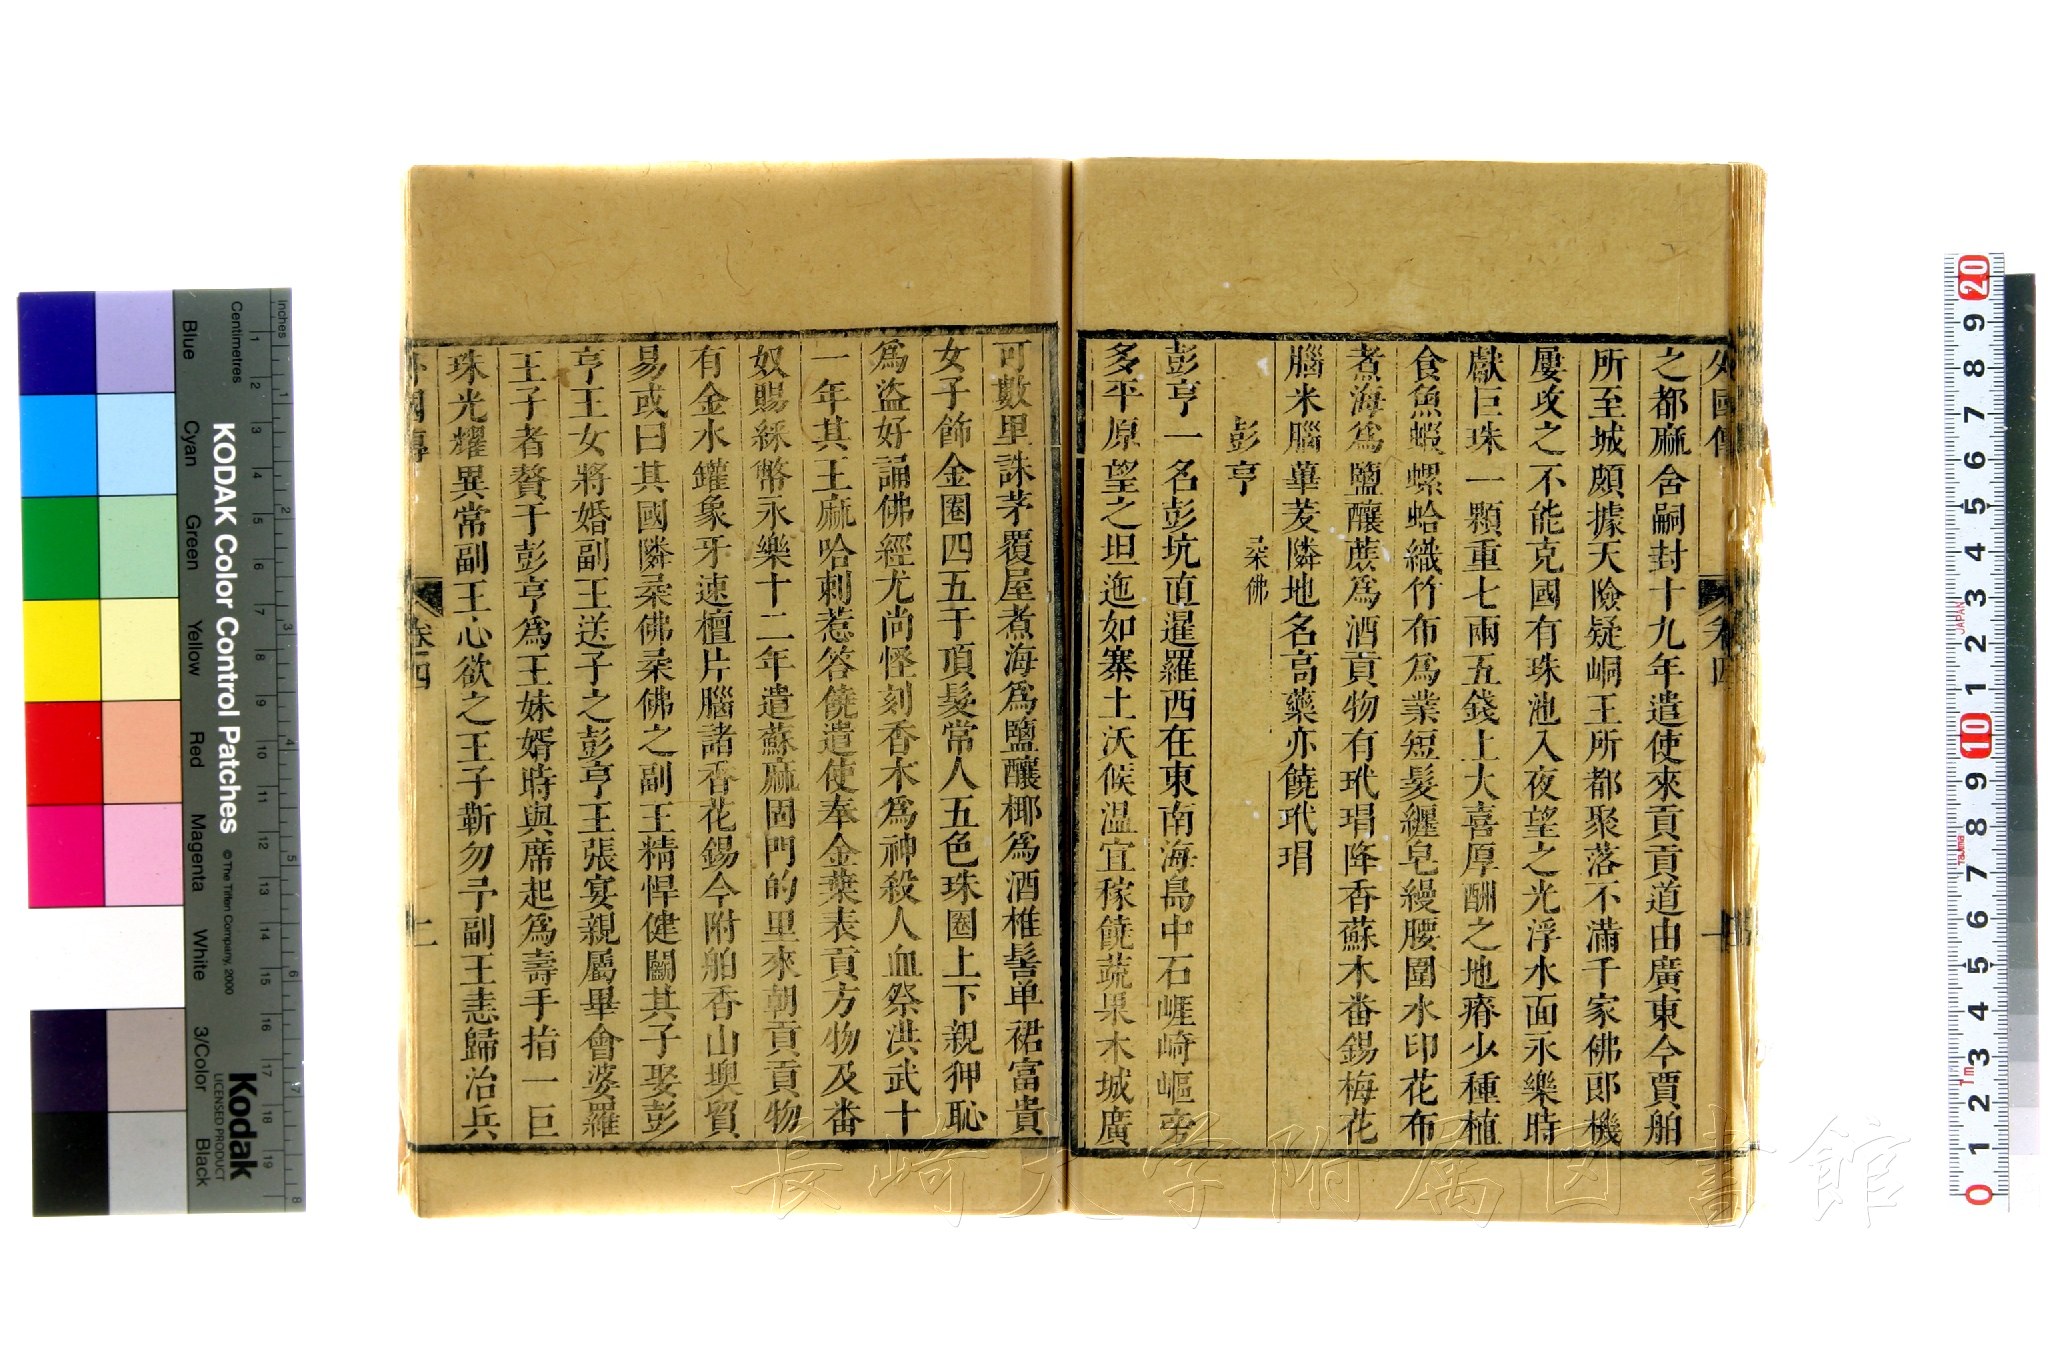 外國傳 卷四
之都麻含嗣封十九年遣使來貢貢道由廣東今賈舶
所至城頗據天險疑峒王所都聚落不滿千家佛郎機
屢攻之不能克國有珠池入夜望之光浮水面永樂時
獻巨珠一顆重七兩五錢上大喜厚酬之地瘠少種植
食魚蝦螺蛤織竹布爲業短髮纒皂縵腰圍水印花布
煮海爲鹽釀蔗爲酒貢物有玳瑁降香蘇木番錫梅花
腦米腦蓽茇隣地名高藥亦饒玳瑁
彭亨 桑佛
彭亨一名彭坑直暹羅西在東南海島中石崕崎嶇旁
多平原望之坦迤如寨土沃候温宜稼饒蔬果木城廣
可數里誅茅覆屋煮海爲鹽釀椰爲酒椎髻单裙富貴
女子飾金圈四五于頂髮常人五色珠圈上下親狎恥
爲盜好誦佛經尤尚怪刻香木爲神殺人血祭洪武十
一年其王麻哈剌惹答饒遣使奉金葉表貢方物及番
奴賜綵幣永樂十二年遣蘇麻固門的里來朝貢貢物
有金水罐象牙速檀片腦諸香花錫今附舶香山墺貿
易或曰其國隣桑佛桑佛之副王精悍健鬭其子娶彭
亨王女將婚副王送子之彭亨王張宴親屬畢會婆羅
王子者贅于彭亨爲王妹婿時與席起爲壽手指一巨
珠光燿異常副王心欲之王子靳勿予副王恚歸治兵
外國傳 卷四 二
KODAK Color Control Patches
© The Tiffen Company, 2000
Kodak
LICENSED PRODUCT
Centimetres
Inches
Blue
Cyan
Green
Yellow
Red
Magenta
White
3/Color
Black
JAPAN
Tajima
長崎大学附属図書館